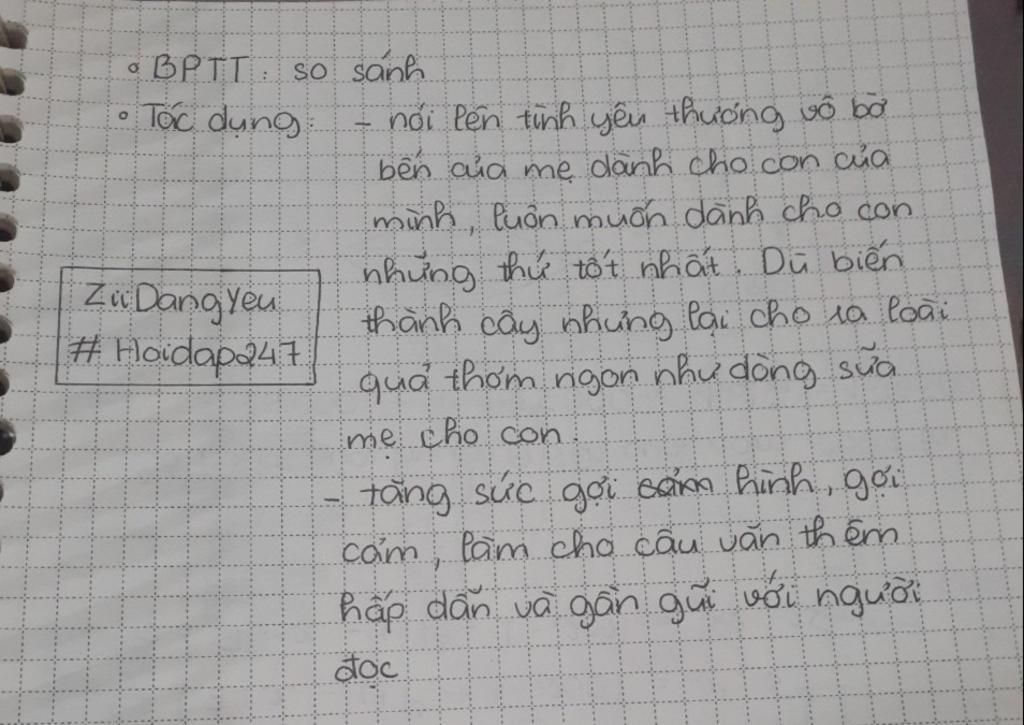 ∘ BPTT: so sánh
∘ Tác dụng: - nói lên tình yêu thương vô bờ
bến của mẹ dành cho con của
mình, luôn muốn dành cho con
những thứ tốt nhất. Dù biến
thành cây nhưng lại cho ra loài
quả thơm ngon như dòng sữa
mẹ cho con.
- tăng sức gợi hình, gợi
cảm, làm cho câu văn thêm
hấp dẫn và gần gũi với người
đọc
ZiiDangYeu
#Hoidap247